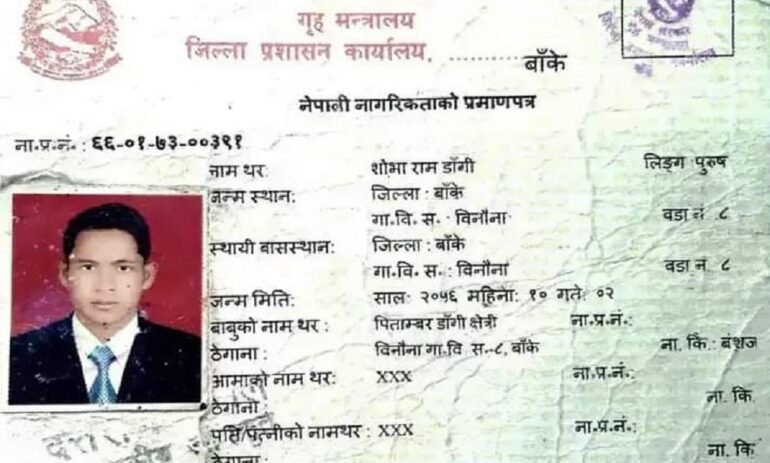 गृह मन्त्रालय
जिल्ला प्रशासन कार्यालय, ......... बाँके
नेपाली नागरिकताको प्रमाणपत्र
ना.प्र.नं. : ६६-०१-७३-००३९१
नाम थर: शोभा राम डाँगी लिङ्ग पुरुष
जन्म स्थान: जिल्ला : बाँके
गा.वि स. : विनौना वडा नं ८
स्थायी बासस्थान: जिल्ला : बाँके
गा.वि स. : विनौना वडा नं ८
जन्म मिति: साल: २०५६ महिना: १० गते: ०२
बाबुको नाम थर : पिताम्बर डाँगी क्षेत्री ना.प्र.नं.:
ठेगाना : विनौना गा.वि स.-८, बाँके ना. कि.: बंशज
आमाको नाम थर: XXX ना.प्र.नं.:
ठेगाना : ना. कि.
पति/पत्नीको नामथर : XXX ना.प्र.नं.:
ठेगाना: ना. कि